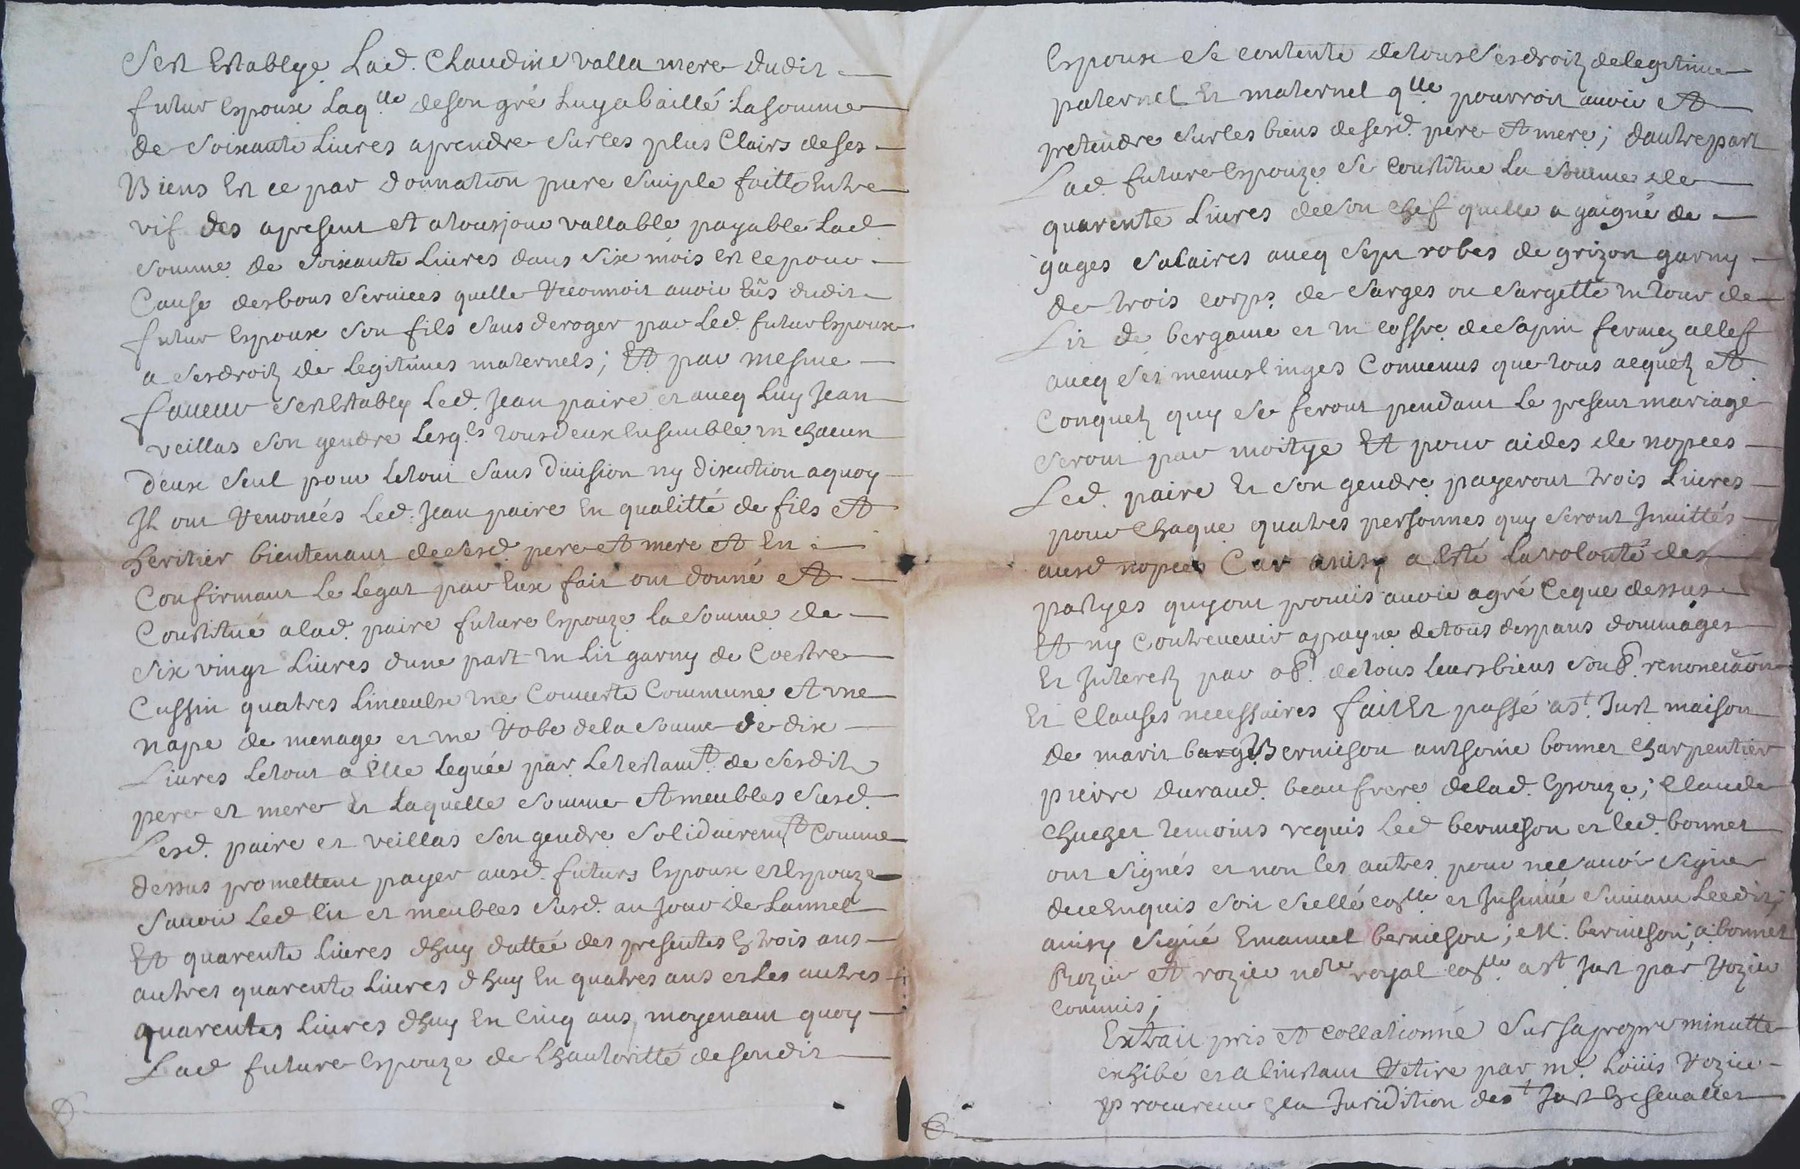 Sest Establye Lad. Claudine valla mere dudit
futur Espoux Laq.lle deson gré Luy a baillé La somme
de soixante Livres aprendre sur les plus Clairs de ses
Biens Et ce par donnation pure simple faitte Entre
vif des apresent et a tousjour vallable payable Lad
somme de soixante Livres dans six mois Et ce pour
Cause des bons services quelle reconnoit avoir Eus dudit
futur Espoux son fils sans deroger par Led. futur Espoux
a ses droitz de Legitimes maternels; Et par mesme
faveur sest Estably Led. Jean paire et avec Luy Jean
veillas son gendre Lesq.ls tous deux Ensemble un chacun
deux seul pour Le tout sans division ny discution aquoy
Jls ont renoncés Led. Jean paire En qualitté de fils Et
heritier bientenant de sesd. pere Et mere Et En
Confirmant Le Legat par Eux fait ont donné Et
Constitué a lad. paire future Espouze la somme de
six vingt Livres dune part un lit garny de Coestre
Cussin quatres Linceulx une Couverte Commune Et une
nape de menage et une robe de la somme de dix
Livres Le tout a Elle Leguée par Le testam.t de sesdits
pere et mere et Laquelle somme Et meubles susd.
Lesd. paire et veillas son gendre solidairem.t Comme
dessus promettent payer ausd. futurs Espoux et Espouze
savoir Led lit et meubles susd. au Jour de Lannel
Et quarente Livres dhuy datteé des presentes En trois ans
autres quarente Livres dhuy En quatres ans et Les autres
quarentes Livres dhuy En Cinq ans, moyenant quoy
Lad future Espouze de Lhautoritté de sondit
Espoux se contente de tous ses droitz de legitime
paternel Et maternel q.lle pourroit avoir Et
pretendre sur les biens de sesd. pere Et mere; dautre part
Lad. future Espouze se constitue La somme de
quarente Livres de son chef quelle a gaigné de
gages salaires avecq sept robes de grizon garny
de trois corps de sarges ou sargette un tour de
Lit de bergame et un coffre de sapin fermez a clef
avecq ses menus linges Convenus que tous acquetz Et
Conquetz quy se feront pendant Le present mariage
seront par moitye Et pour aides de nopces
Led. paire Et son gendre payeront trois Livres
pour Chaque quatres personnes quy seront Jnvittés
ausd nopces Car ainsy a Esté La volonté des
partyes quy ont promis avoir agré Ceque dessus
Et ny Contrevenir apayne de tous despans dommages
Et Jnterestz par ob.t de tous leurs biens soub. renonciaon
Et Clauses necessaires fait Et passé a s.t Just maison
de marit Bernieson anthoine bonnet charpentier
pierre durand. beaufrere de lad. Espouze; Claude
Chuchet temoins requis Led bernieson et led. bonnet
ont signés et non les autres pour ne savoir signer
de ce Enquis soit scellé con.lle et Jnsinué suivant Leedit,
ainsy signé Emanuel bernieson; M. bernieson; a. bonnet
Rozier Et rozier no.re royal con.lle a s.t Just par rozier
commis;
Extrait pris Et collationné sur sa propre minutte
exhibé et a linstant retiré par m.e Loüis rozier
procureur En la Juridition de s.t Just En chevallet